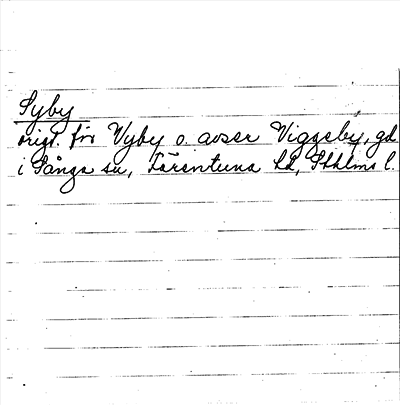 Syby
origt. för Vyby o. avser Viggeby, gd
i Sånga sn, Färentuna hd, Sthlms l.